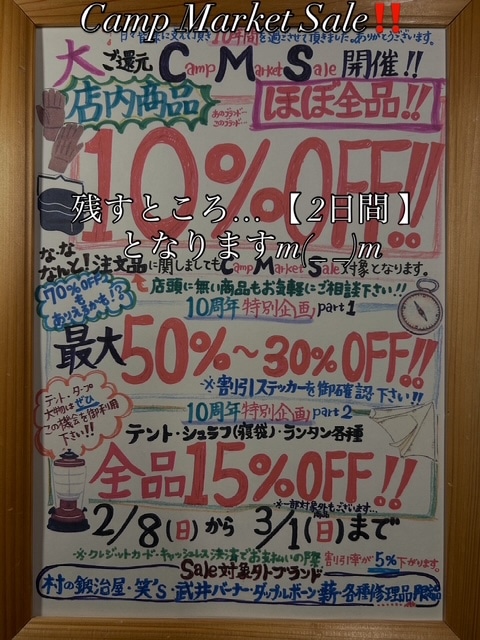 Camp Market Sale‼️
日々皆様に支えて頂き10年間を過ごさせて頂きました。ありがとうございます。
大ご還元 Camp Market Sale 開催!!
店内商品
あのブランド…
このブランド…
ほぼ全品!!
10%OFF!!
残すところ…【2日間】
となりますm(_ _)m
な・な
なんと!注文品に関しましてもCamp Market Sale対象となります。
店頭に無い商品もお気軽にご相談下さい!!
70%OFFも
ありえるかも!?
10周年 特別企画 part1
最大50%~30%OFF!!
※割引ステッカーを御確認下さい!!
テント・タープ
大物はぜひ
この機会を御利用
下さい!!
10周年 特別企画 part2
テント・シュラフ(寝袋)・ランタン各種
全品15%OFF!!
※一部対象外もございます…
2/8(日)から 3/1(日)まで
※クレジットカード・キャッシュレス決済でお支払いの際 割引率が5%下がります。
Sale対象外ブランド
村の鍛冶屋・笑's・武井バーナー・ダッチルボーン 薪・各種修理品